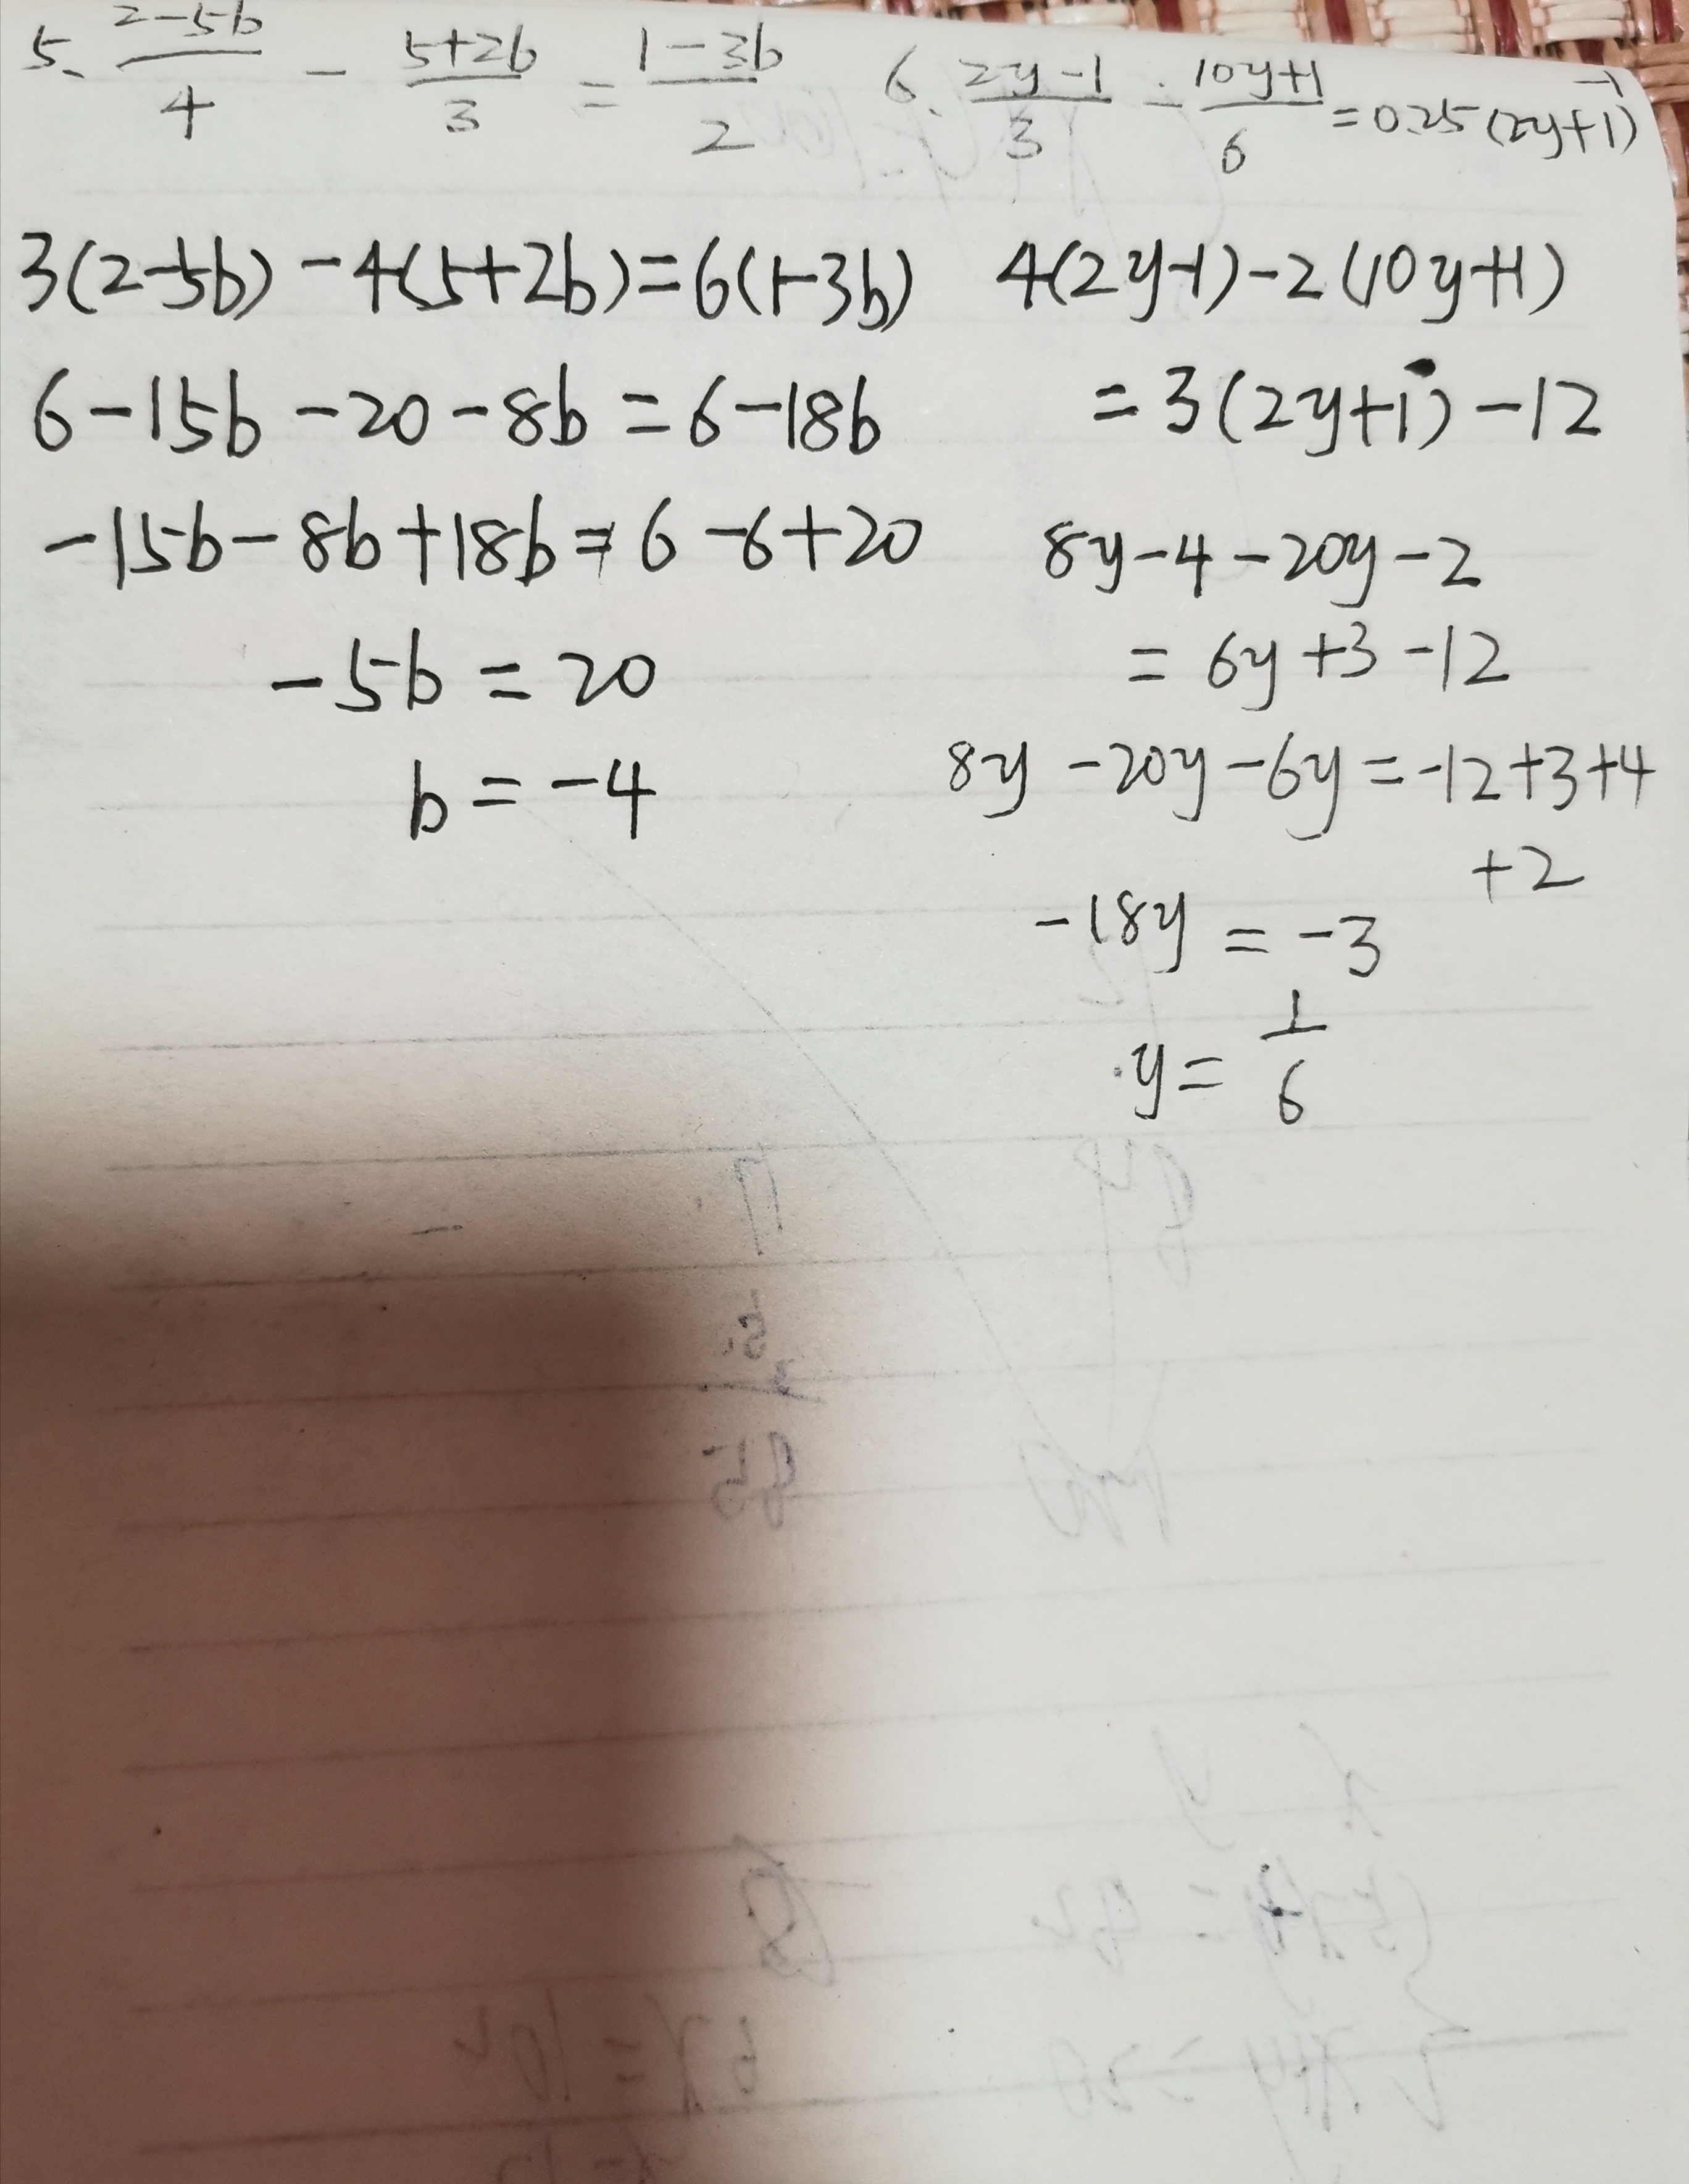 5. (2-5b)/4 - (5+2b)/3 = (1-3b)/2
3(2-5b)-4(5+2b)=6(1-3b)
6-15b-20-8b=6-18b
-15b-8b+18b=6-6+20
-5b=20
b=-4
6. (2y-1)/3 - (10y+1)/6 =0.25(2y+1)-1
4(2y-1)-2(10y+1)
=3(2y+1)-12
8y-4-20y-2
=6y+3-12
8y-20y-6y=-12+3+4
+2
-18y=-3
y=1/6